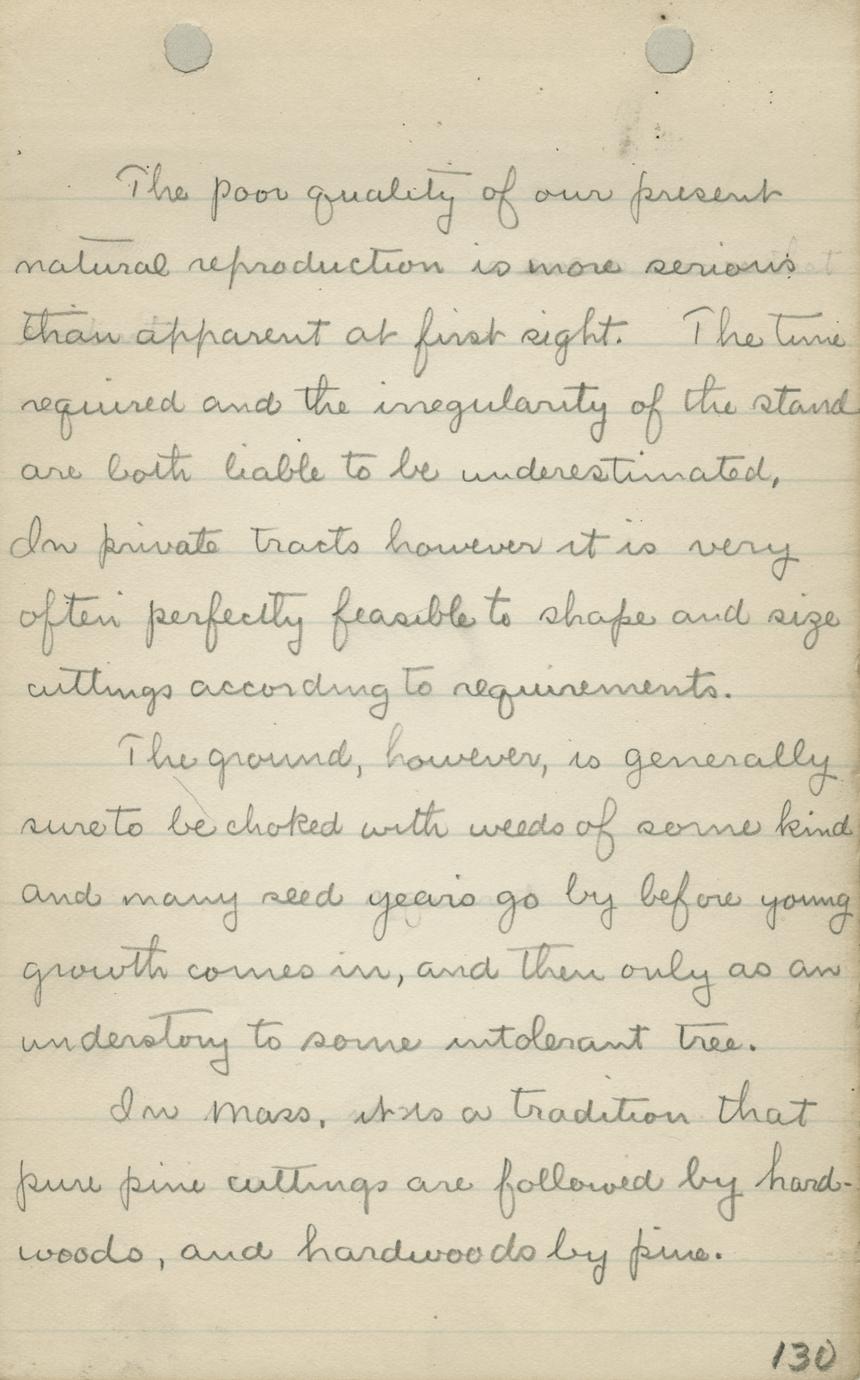 The poor quality of our present
natural reproduction is more serious
than apparent at first sight. The time
required and the irregularity of the stand
are both liable to be underestimated,
In private tracts however it is very
often perfectly feasible to shape and size
cuttings according to requirements.
The ground, however, is generally
sure to be choked with weeds of some kind
and many seed years go by before young
growth comes in, and then only as an
understory to some intolerant tree.
In Mass. it is a tradition that
pure pine cuttings are followed by hard-
woods, and hardwoods by pine.
130